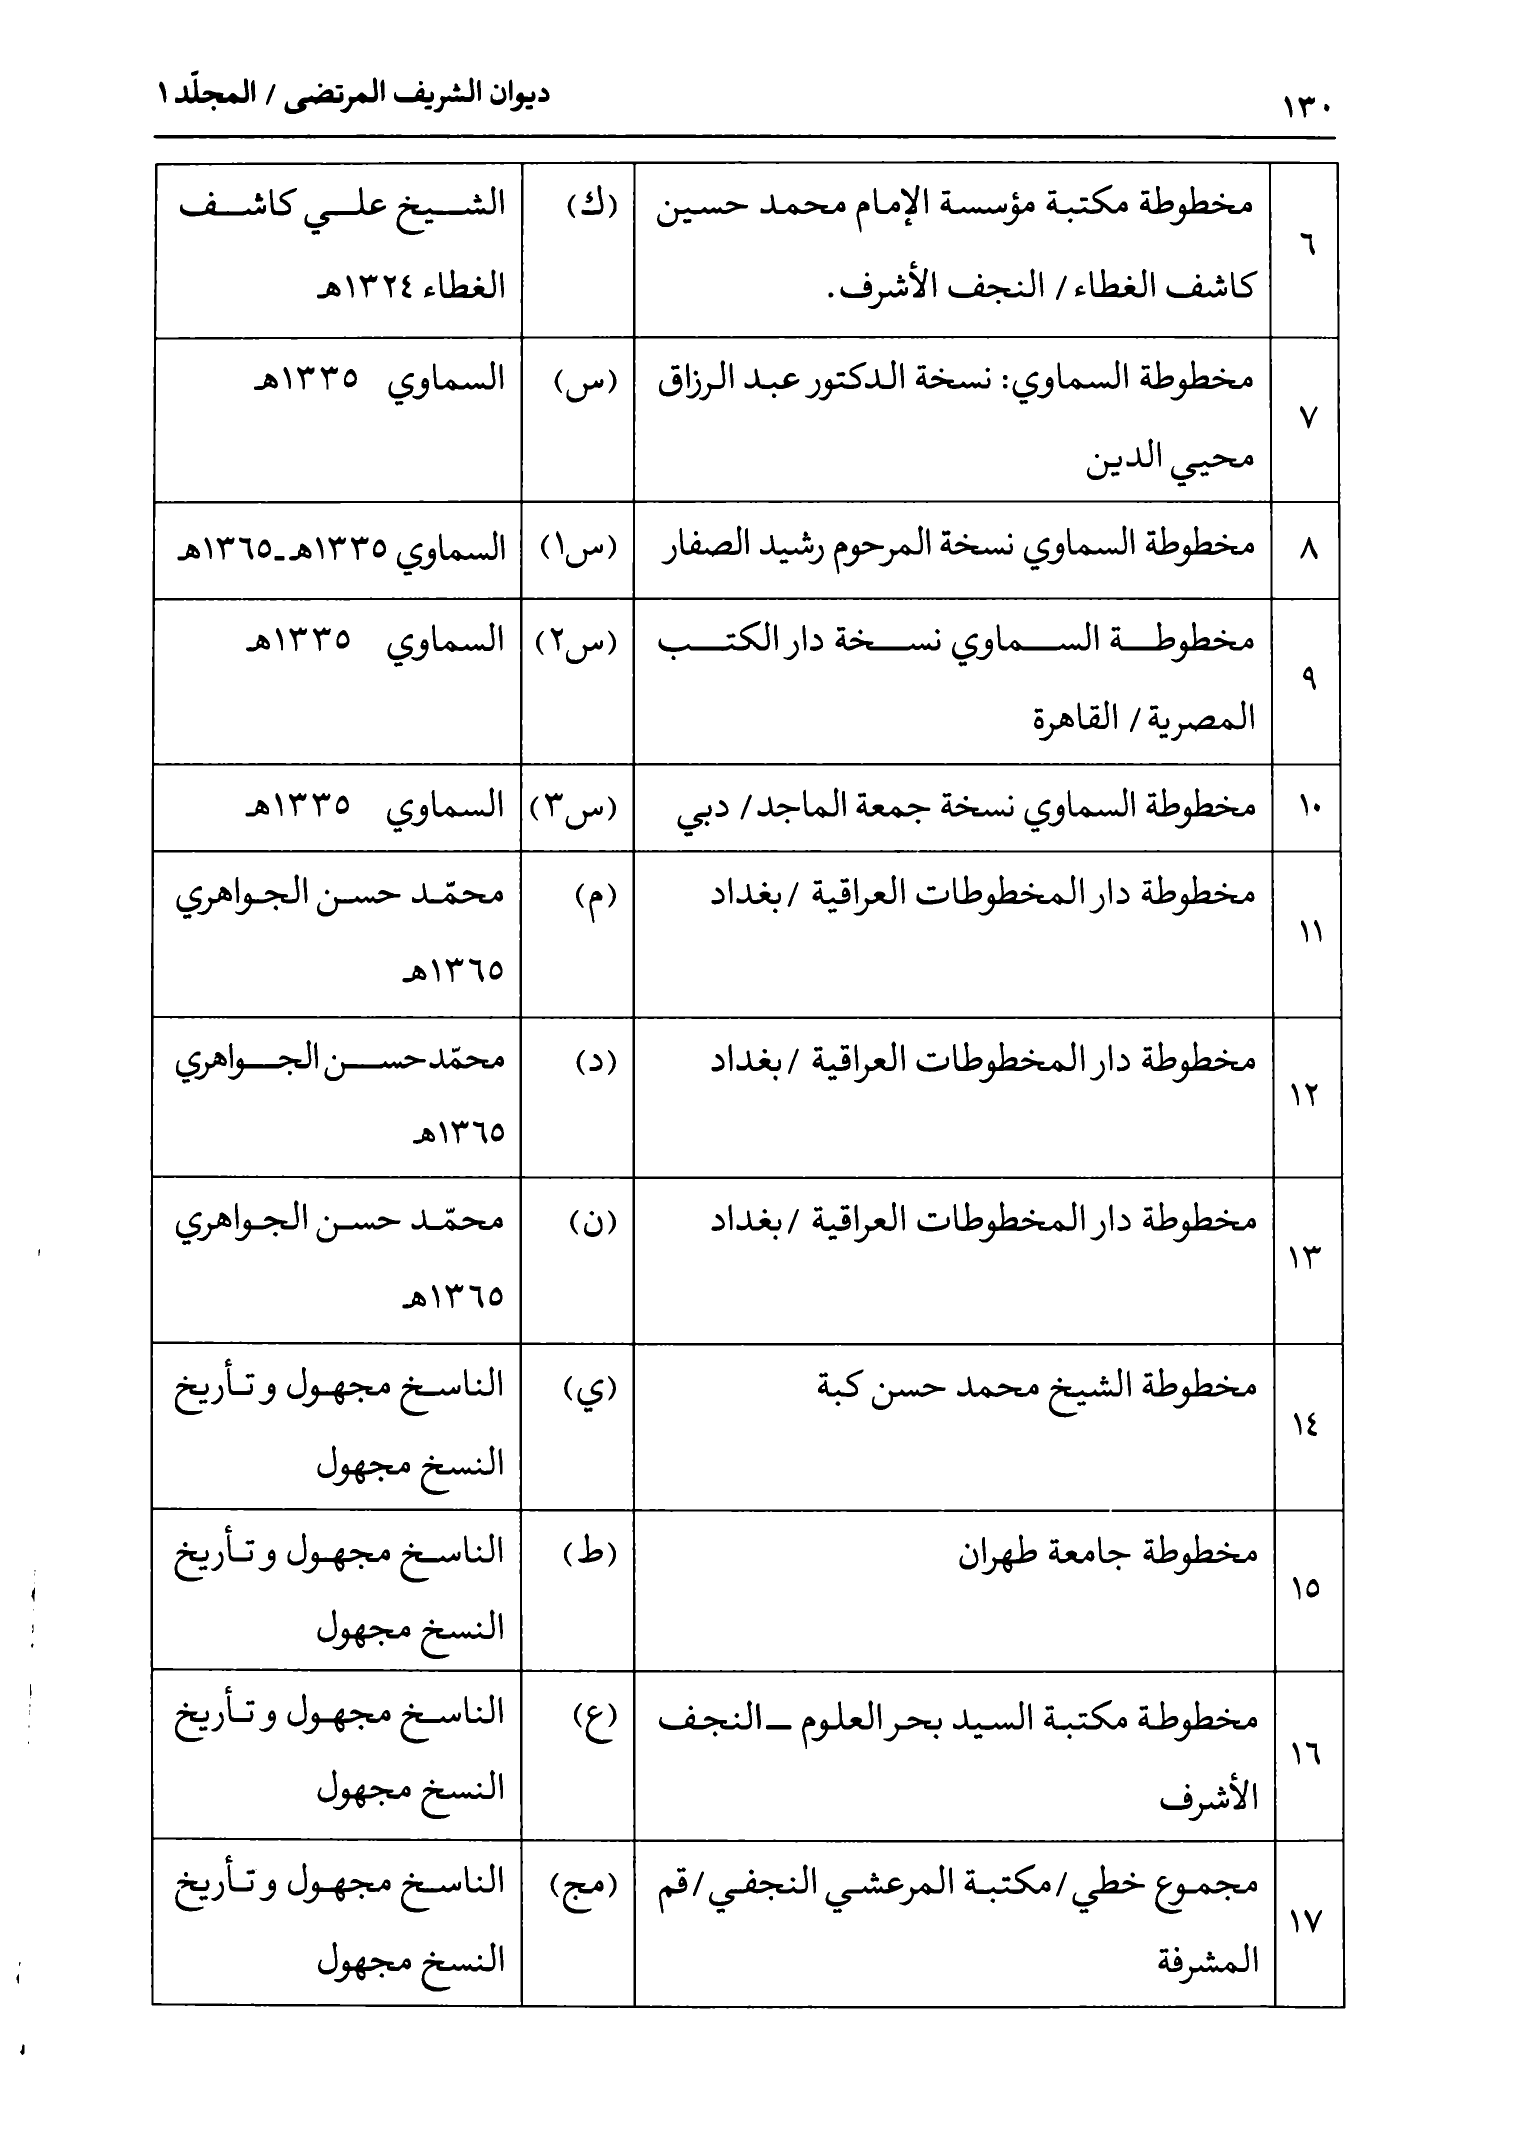 ١٣٠
ديوان الشريف المرتضى / المجلّد ١
٦
مخطوطة مكتبة مؤسسة الإمام محمد حسين
كاشف الغطاء / النجف الأشرف.
(ك)
الشيخ علي كاشف
الغطاء ١٣٢٤هـ
٧
مخطوطة السماوي: نسخة الدكتور عبد الرزاق
محيي الدين
(س)
السماوي ١٣٣٥هـ
٨
مخطوطة السماوي نسخة المرحوم رشيد الصفار
(س١)
السماوي ١٣٣٥هـ ـ ١٣٦٥هـ
٩
مخطوطة السماوي نسخة دار الكتب
المصرية / القاهرة
(س٢)
السماوي ١٣٣٥هـ
١٠
مخطوطة السماوي نسخة جمعة الماجد / دبي
(س٣)
السماوي ١٣٣٥هـ
١١
مخطوطة دار المخطوطات العراقية / بغداد
(م)
محمّد حسن الجواهري
١٣٦٥هـ
١٢
مخطوطة دار المخطوطات العراقية / بغداد
(د)
محمّد حسن الجواهري
١٣٦٥هـ
١٣
مخطوطة دار المخطوطات العراقية / بغداد
(ن)
محمّد حسن الجواهري
١٣٦٥هـ
١٤
مخطوطة الشيخ محمد حسن كبة
(ي)
الناسخ مجهول و تأريخ
النسخ مجهول
١٥
مخطوطة جامعة طهران
(ط)
الناسخ مجهول و تأريخ
النسخ مجهول
١٦
مخطوطة مكتبة السيد بحر العلوم ـ النجف
الأشرف
(ع)
الناسخ مجهول و تأريخ
النسخ مجهول
١٧
مجموع خطي / مكتبة المرعشي النجفي / قم
المشرفة
(مج)
الناسخ مجهول و تأريخ
النسخ مجهول